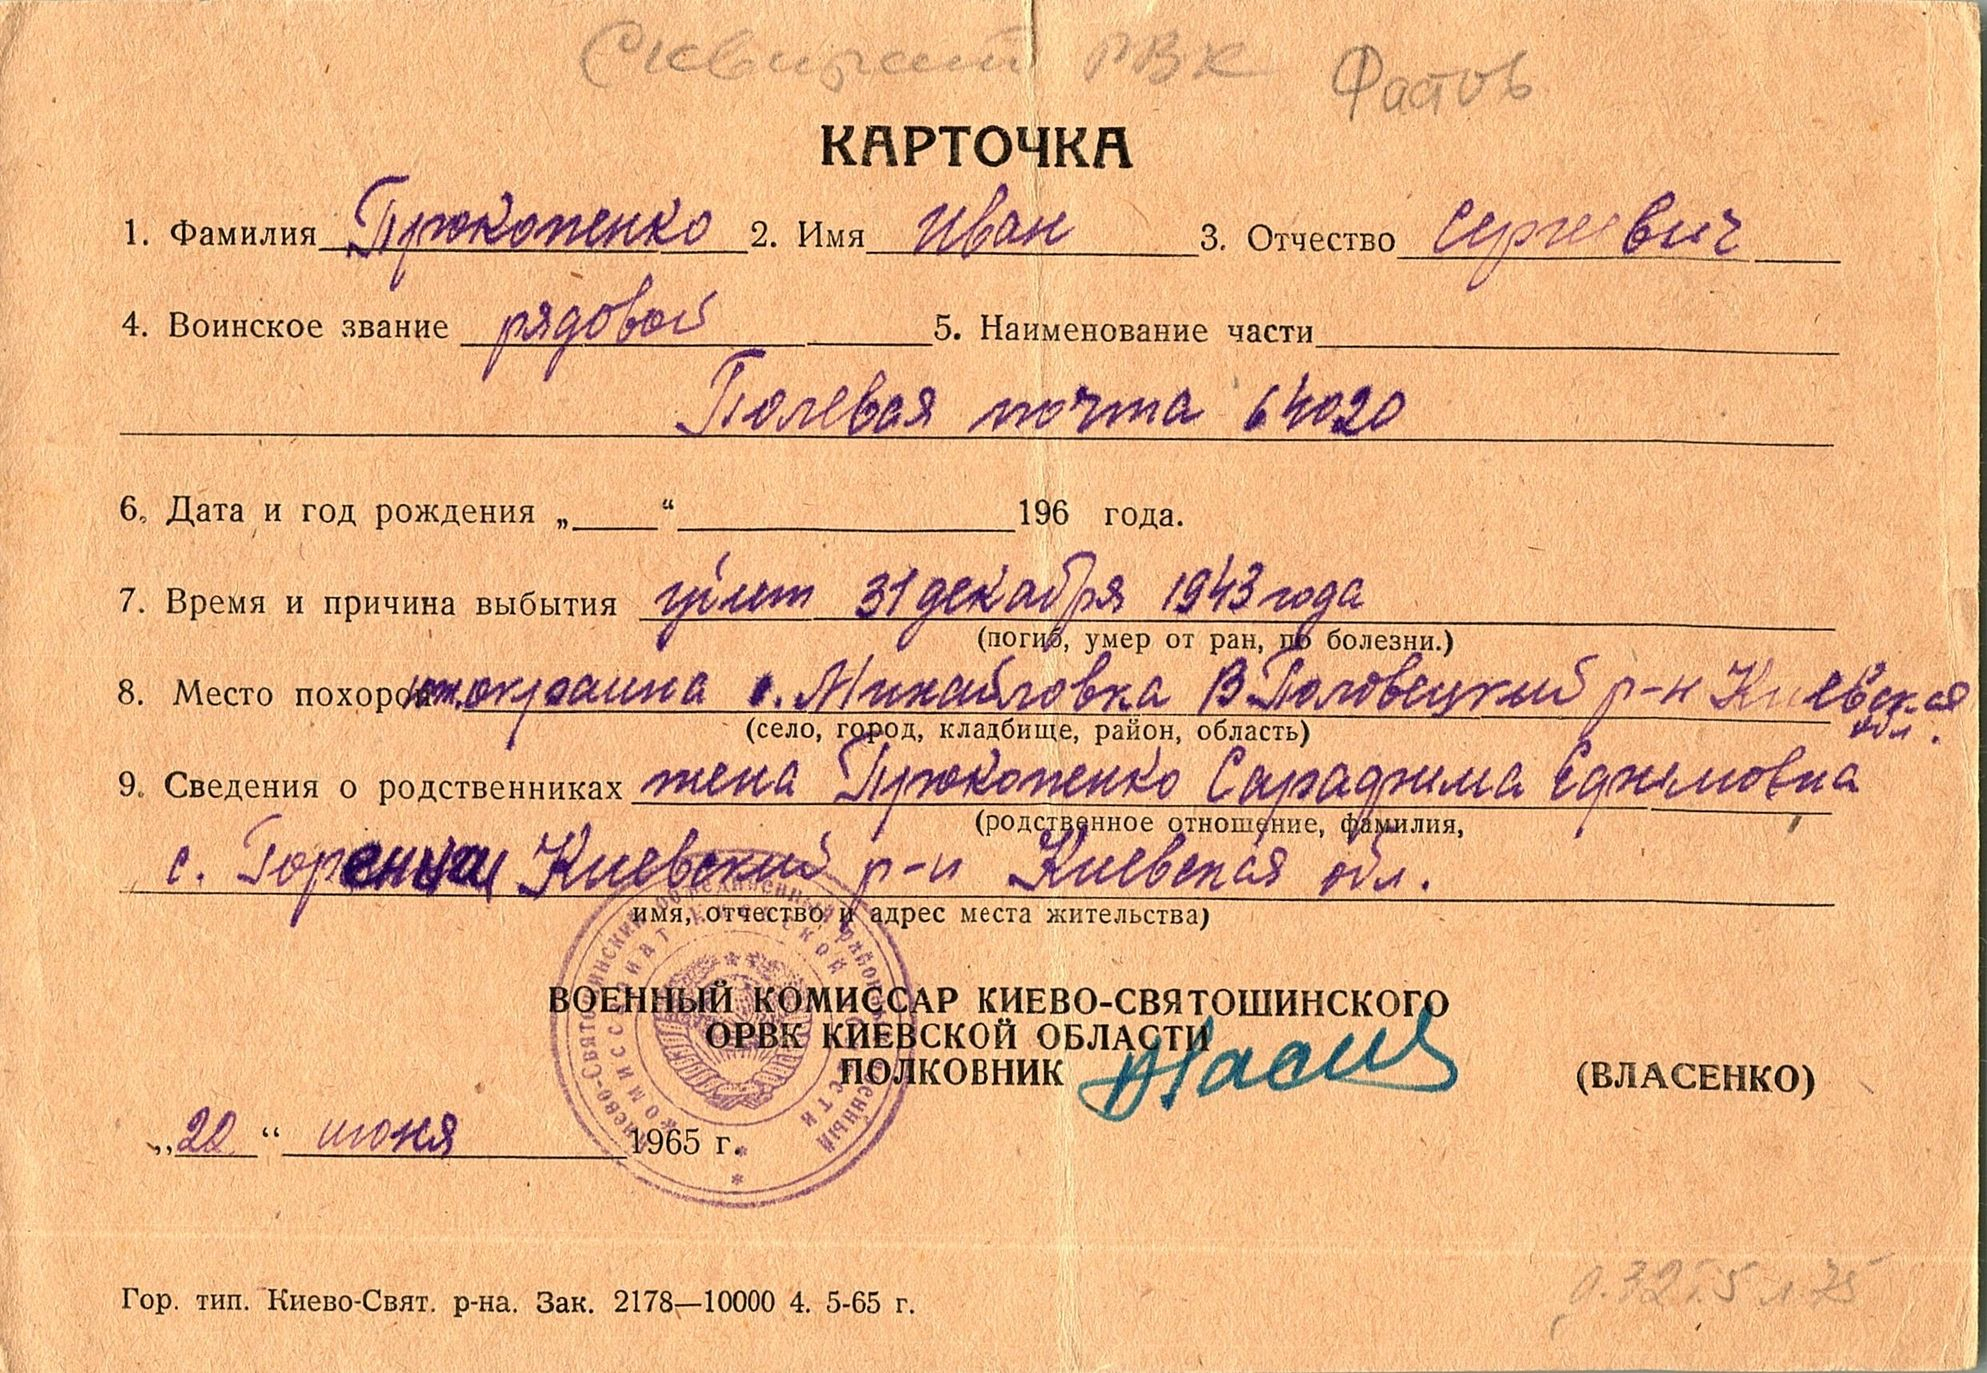 Сквирский РВК Фастов
КАРТОЧКА
1. Фамилия Прокопенко 2. Имя Иван 3. Отчество Сергеевич
4. Воинское звание рядовой 5. Наименование части
Полевая почта 64020
6. Дата и год рождения „ “ 196 года.
7. Время и причина выбытия убит 31 декабря 1943 года
(погиб, умер от ран, по болезни.)
8. Место похорон окраина с. Михайловка В Половецкий р-н Киевская обл.
(село, город, кладбище, район, область)
9. Сведения о родственниках жена Прокопенко Сарадрима Ефимовна
(родственное отношение, фамилия,
с. Киевский р-н Киевская обл.
имя, отчество и адрес места жительства)
Киево-Святошинский объединенный районный военный
комиссариат Киевской области
ВОЕННЫЙ КОМИССАР КИЕВО-СВЯТОШИНСКОГО
ОРВК КИЕВСКОЙ ОБЛАСТИ
ПОЛКОВНИК (ВЛАСЕНКО)
„22“ июня 1965 г.
Гор. тип. Киево-Свят. р-на. Зак. 2178—10000 4. 5-65 г.